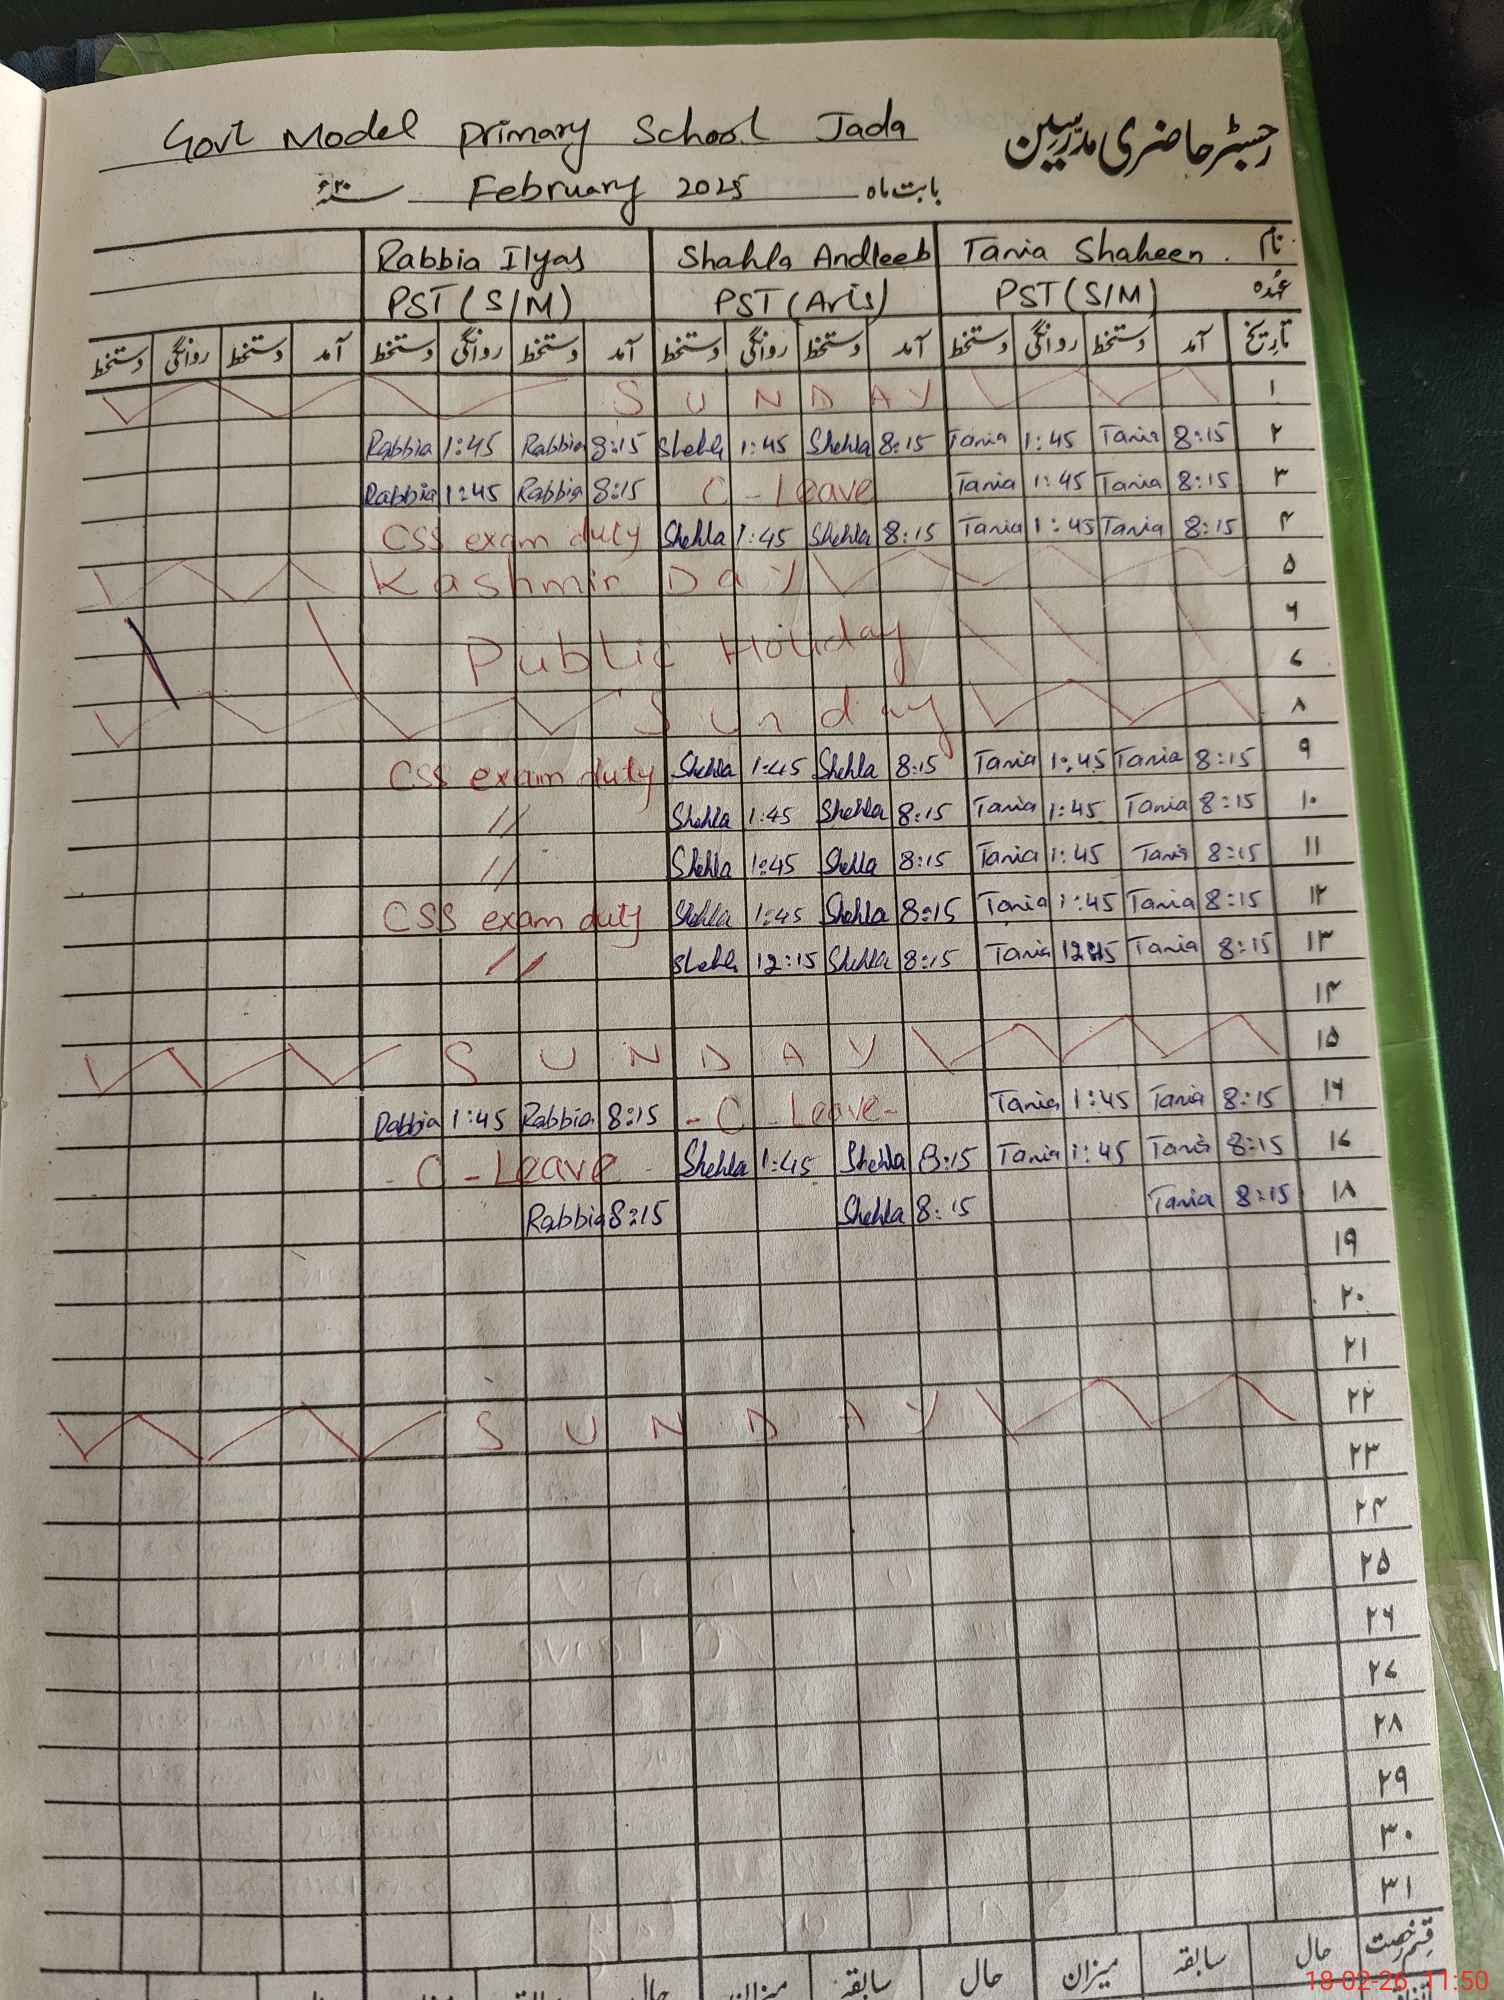 Govt Model Primary School Jada
رجسٹر حاضری مدرسین
بابت ماہ February 2025 ۲۰ء
نام Tania Shaheen. Shahla Andleeb Rabbia Ilyas
عہدہ PST (S/M) PST (Arts) PST (S/M)
تاریخ آمد دستخط روانگی دستخط آمد دستخط روانگی دستخط آمد دستخط روانگی دستخط آمد دستخط روانگی دستخط
۱ SUNDAY
۲ 8:15 Tania 1:45 Tania 8:15 Shehla 1:45 Shehla 8:15 Rabbia 1:45 Rabbia
۳ 8:15 Tania 1:45 Tania C-Leave 8:15 Rabbia 1:45 Rabbia
۴ 8:15 Tania 1:45 Tania 8:15 Shehla 1:45 Shehla CSS exam duty
۵ Kashmir Day
۶
Public Holiday
۷
۸ Sunday
۹ 8:15 Tania 1:45 Tania 8:15 Shehla 1:45 Shehla CSS exam duty
۱۰ 8:15 Tania 1:45 Tania 8:15 Shehla 1:45 Shehla //
۱۱ 8:15 Tania 1:45 Tania 8:15 Shehla 1:45 Shehla //
۱۲ 8:15 Tania 1:45 Tania 8:15 Shehla 1:45 Shehla CSS exam duty
۱۳ 8:15 Tania Tania 8:15 Shehla 12:15 Shehla //
۱۴
۱۵ SUNDAY
۱۶ 8:15 Tania 1:45 Tania -C-Leave- 8:15 Rabbia 1:45 Rabbia
۱۷ 8:15 Tania 1:45 Tania 8:15 Shehla 1:45 Shehla - C-Leave -
۱۸ 8:15 Tania 8:15 Shehla 8:15 Rabbia
۱۹
۲۰
۲۱
۲۲ SUNDAY
۲۳
۲۴
۲۵
۲۶
۲۷
۲۸
۲۹
۳۰
۳۱
قسم رخصت حال سابقہ میزان حال سابقہ میزان حال
18-02-26 11:50